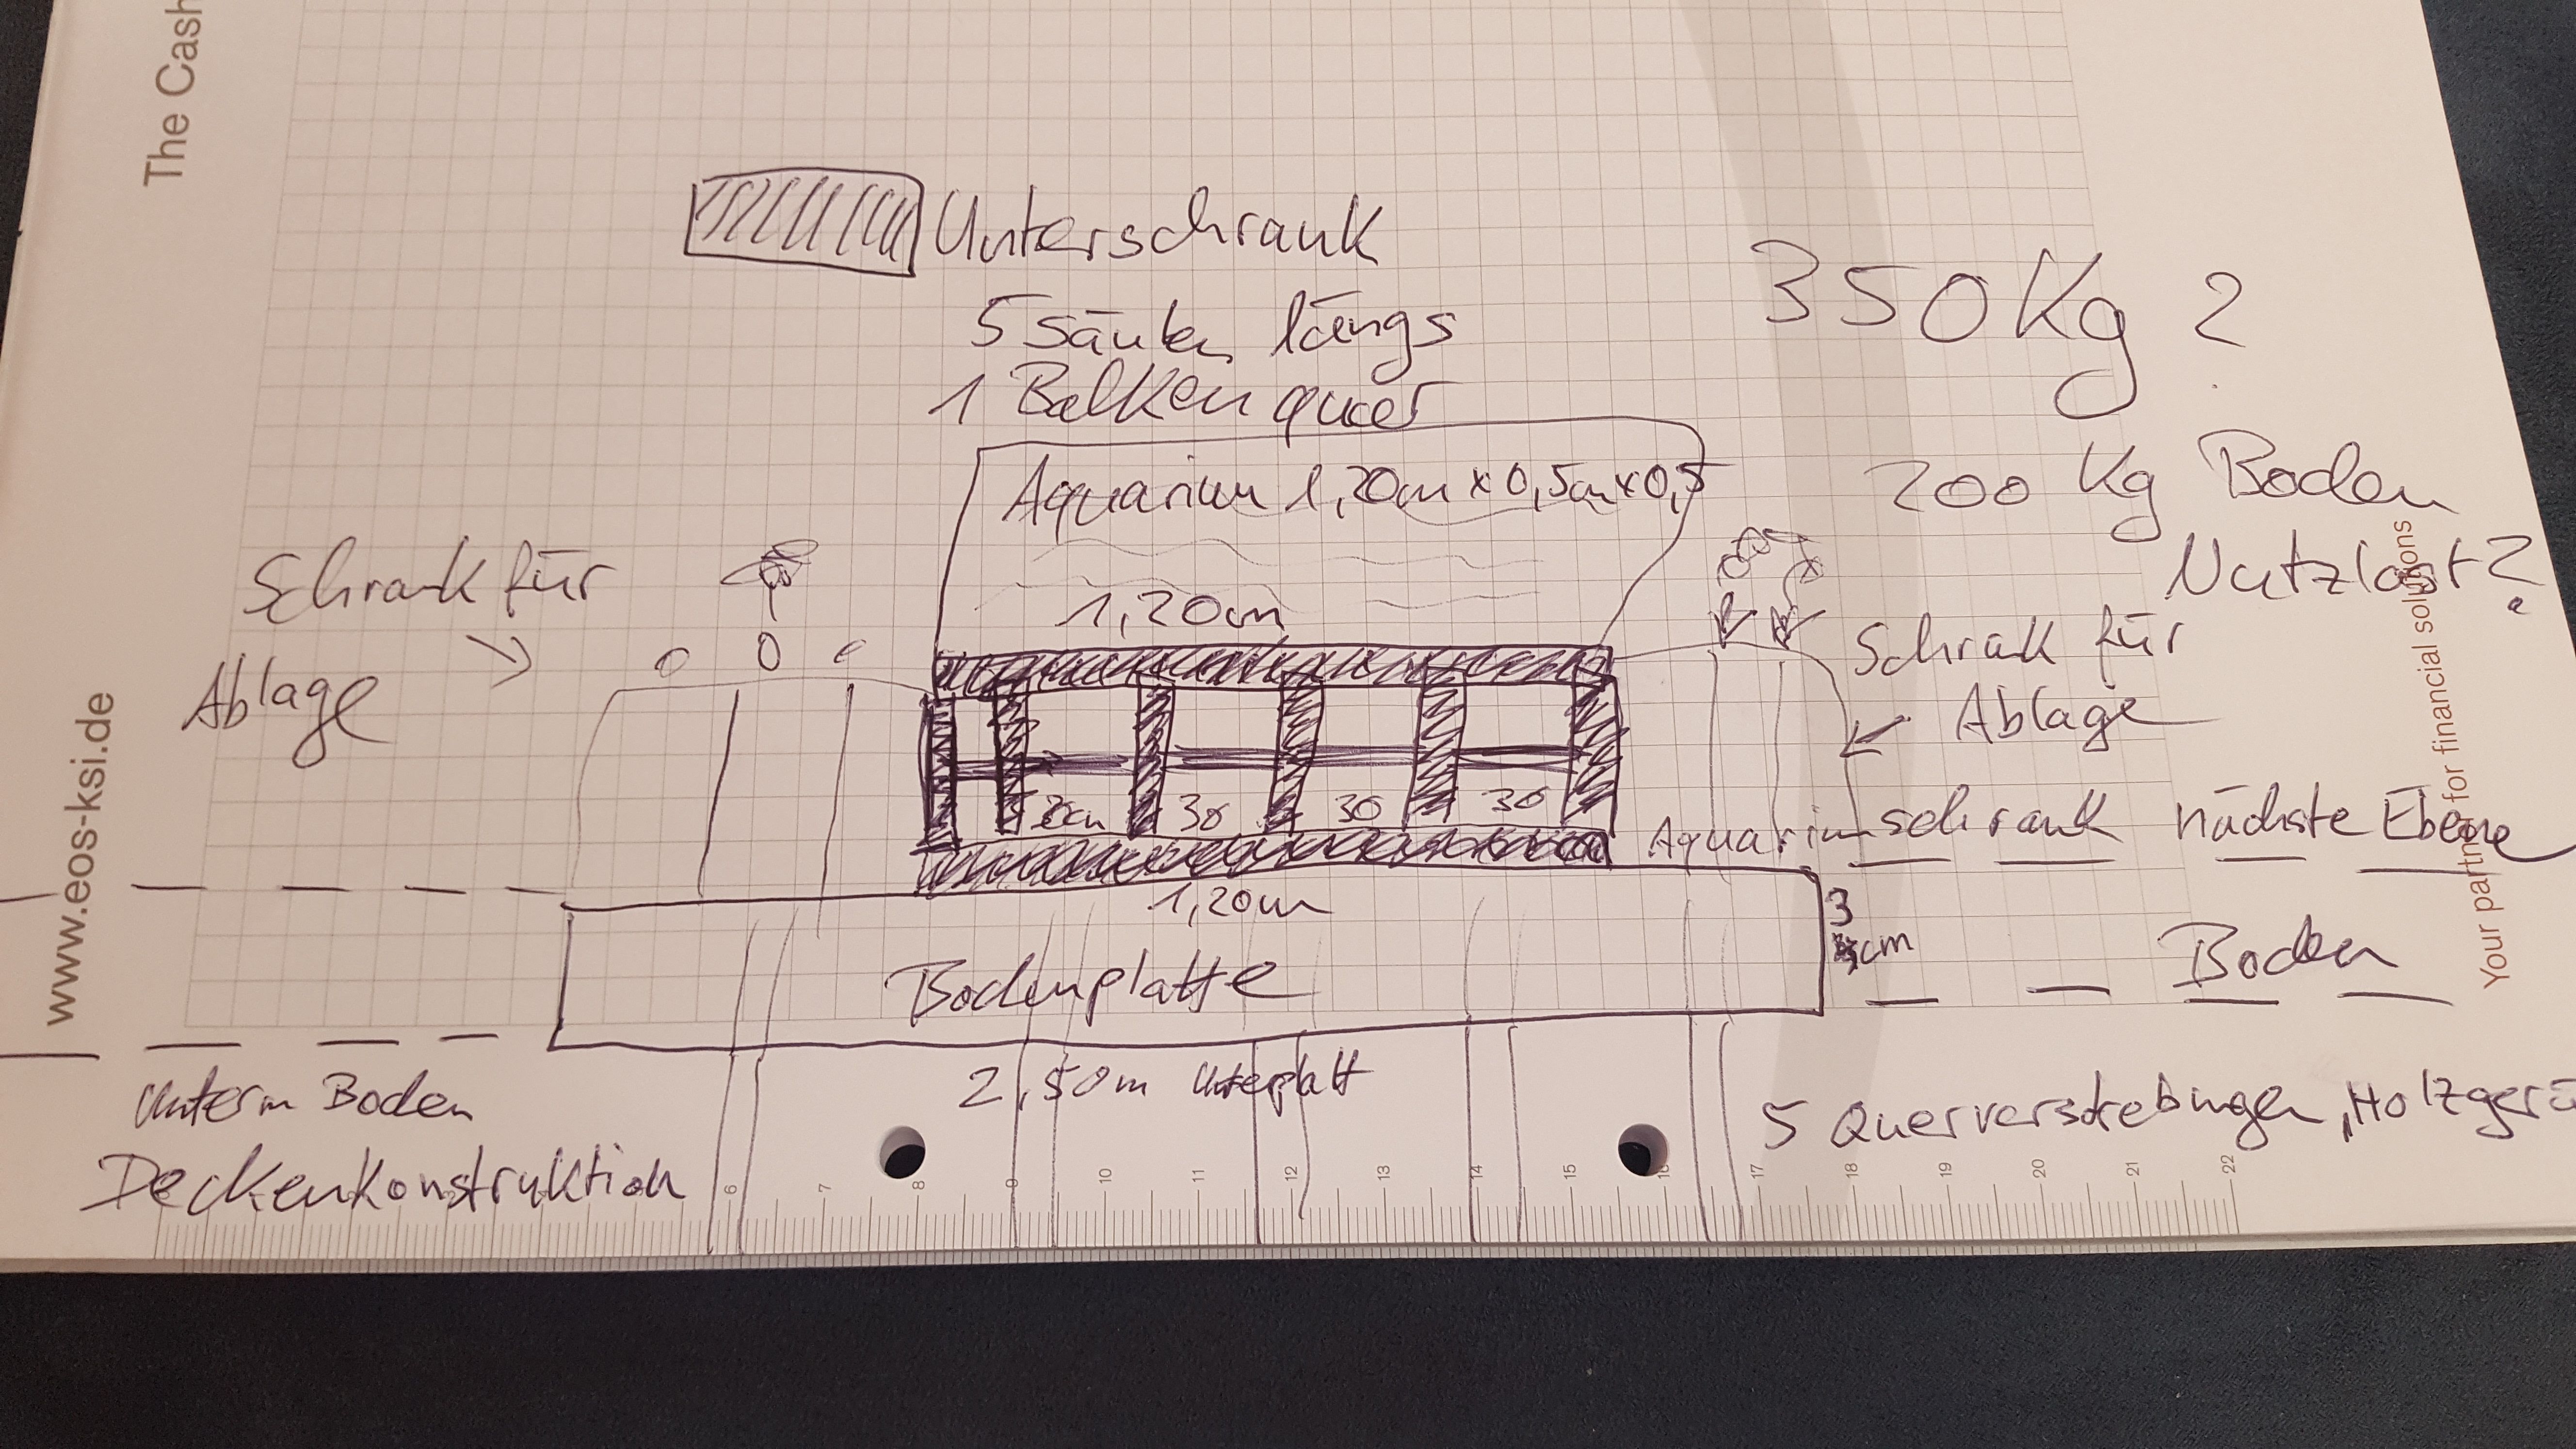 The Cash
Unterschrank
350 Kg ?
5 Säulen längs
1 Balken quer
Aquarium 1,20cm x 0,5cm x 0,5
200 Kg Boden
Nutzlast?
Schrank für
Ablage
1,20cm
Schrak für
Ablage
30 30 30
Aquariumschrank nächste Ebene
1,20cm
3
cm
Bodenplatte
Boden
unterm Boden
Deckenkonstruktion
2,50m
5 Querverstrebungen, Holzgerü
6 7 8 9 10 11 12 13 14 15 16 17 18 19 20 21 22
www.eos-ksi.de
Your partner for financial solutions